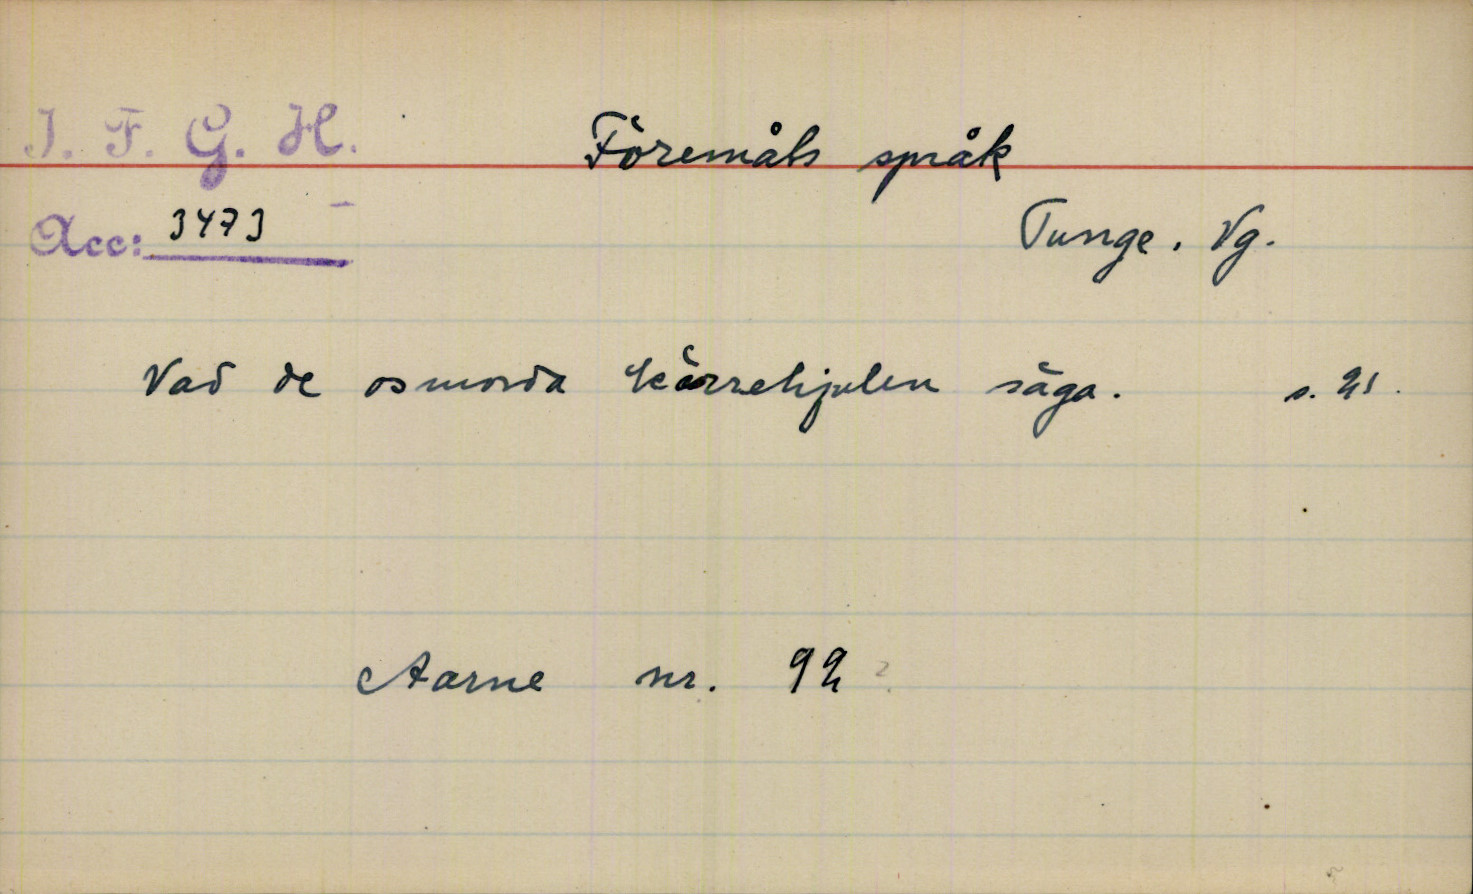 I. F. G. H.
Föremåls språk
Acc: 3473
Tunge. Vg.
Vad de osmorda kärrehjulen säga. s. 21.
Aarne nr. 92 ?